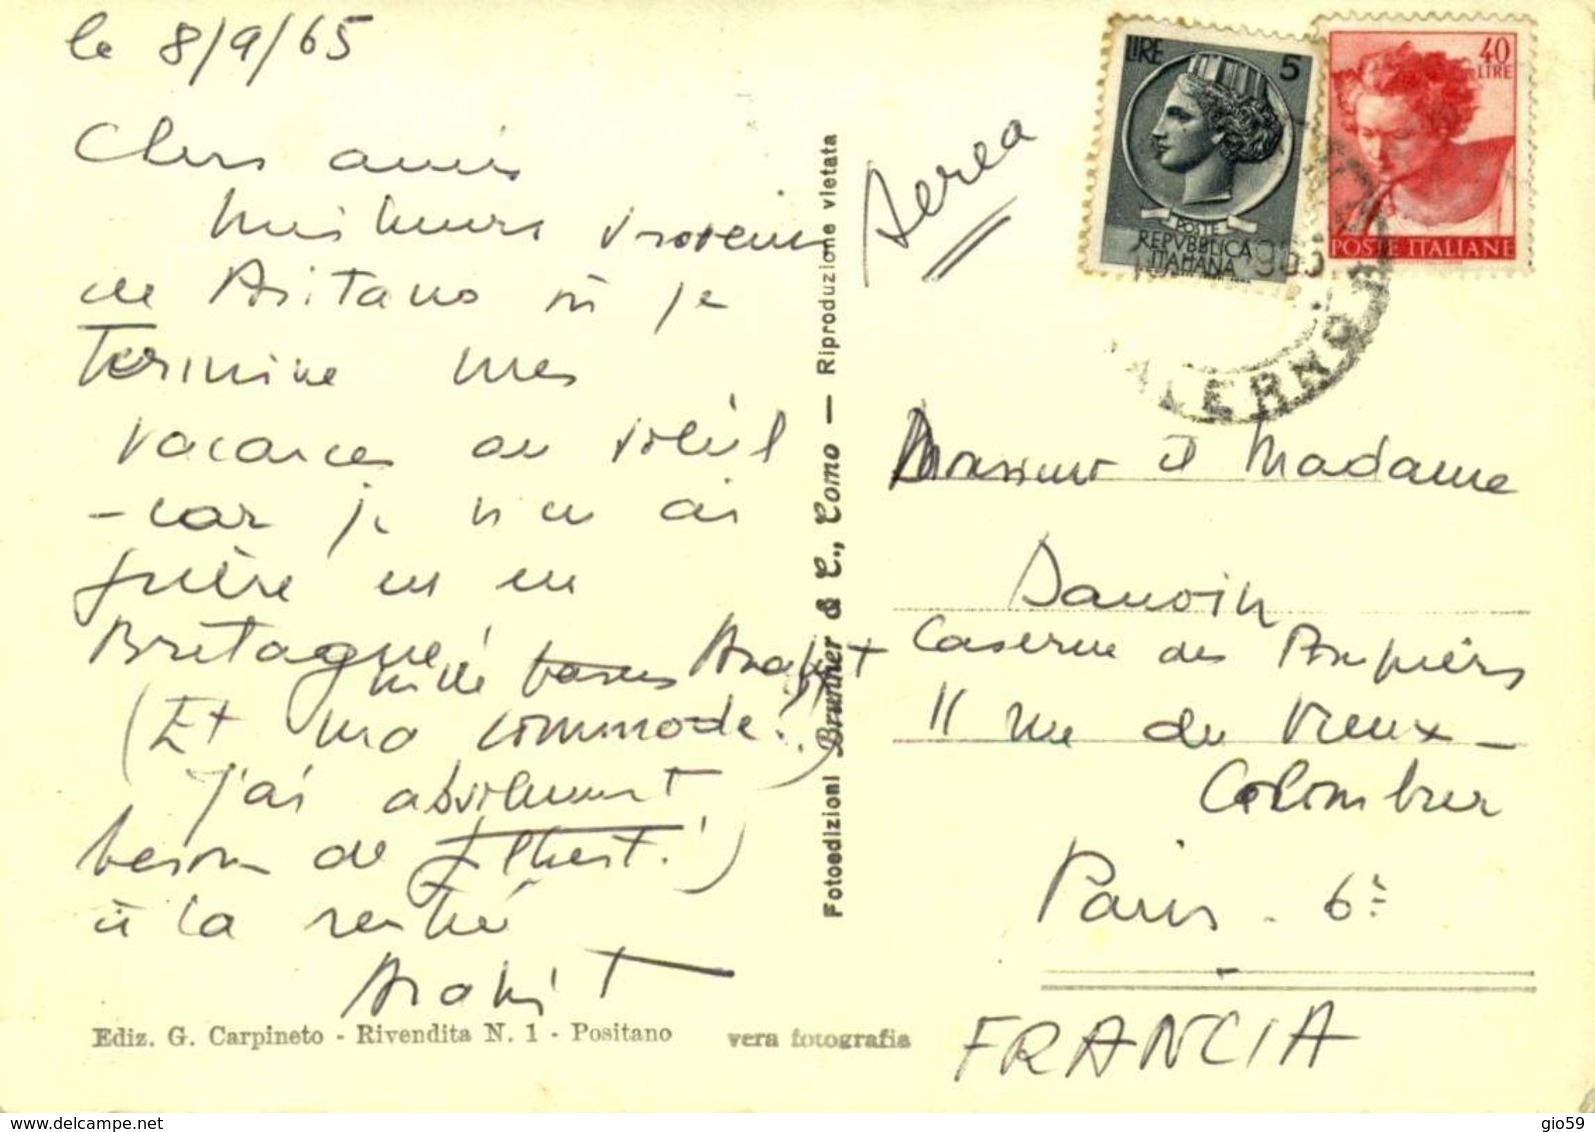 le 8/9/65
Chers amis
Meilleurs souvenirs
de Positano où je
termine mes
vacances au soleil
- car je n'en ai
guère eu en
Bretagne!
mille
(Et ma commode?..)
J'ai absolument
besoin de
à la rentrée
Aerea
LIRE 5
POSTE
REPVBBLICA
ITALIANA
40
LIRE
POSTE ITALIANE
SALERNO
Monsieur et Madame
Danvoin
Caserne des Pompiers
11 rue du Vieux-
Colombier
Paris - 6e
FRANCIA
Fotoedizioni Brunner & C., Como — Riproduzione vietata
Ediz. G. Carpineto - Rivendita N. 1 - Positano
vera fotografia
www.delcampe.net
gio59